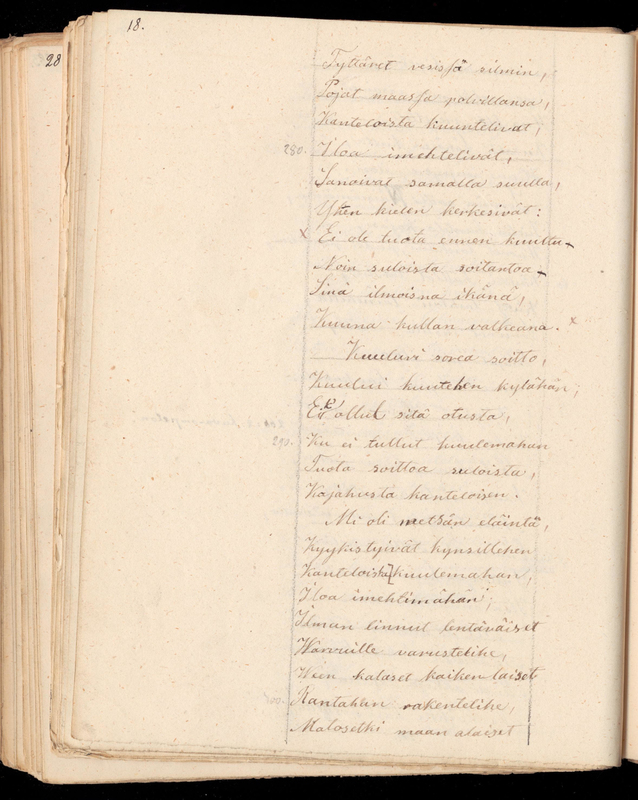 18.
28
Tyttäret vesissä silmin,
Pojat maassa polvillansa,
Kanteloista kuuntelivat,
280. Iloa imehtelivät,
Sanoivat samalla suulla,
Yhen kielen kerkesivät:
x Ei ole tuota ennen kuultu
Noin suloista soitantoa
Sinä ilmoisna ikänä,
Kuuna kullan valkeana. x
Kuuluvi sorea soitto,
Kuului kuutehen kylähän,
Eik' ollut sitä otusta,
290. Ku ei tullut kuulemahan
Tuota soittoa suloista,
Kajahusta kanteloisen.
Mi oli metsän eläintä,
Kyykistyivät kynsillehen
Kanteloista kuulemahan,
Iloa imehtimähän;
Ilman linnut lentäväiset
Warvuille varustelihe,
Ween kalaset kaiken laiset
300. Rantahan rakentelihe,
Matosetki maan alaiset